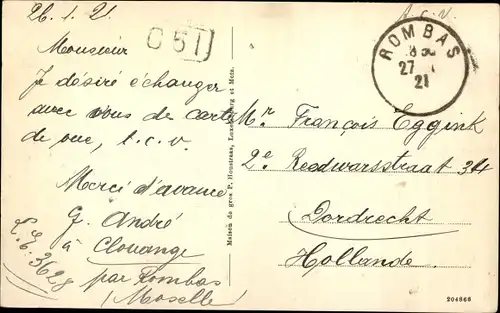 26.1.21.
Monsieur
Je désiré échanger
avec vous de carte
de vue, t.c.v.
Merci d'avance
G. André
à Clouange
par Rombas
(Moselle)
L.E. 3628
C 51
Maison de gros P. Houstraas, Luxembourg et Metz.
A.C.V.
ROMBAS
27
21
Mr. François Eggink
2e Reedwarsstraat 34
Dordrecht
Hollande.
204866